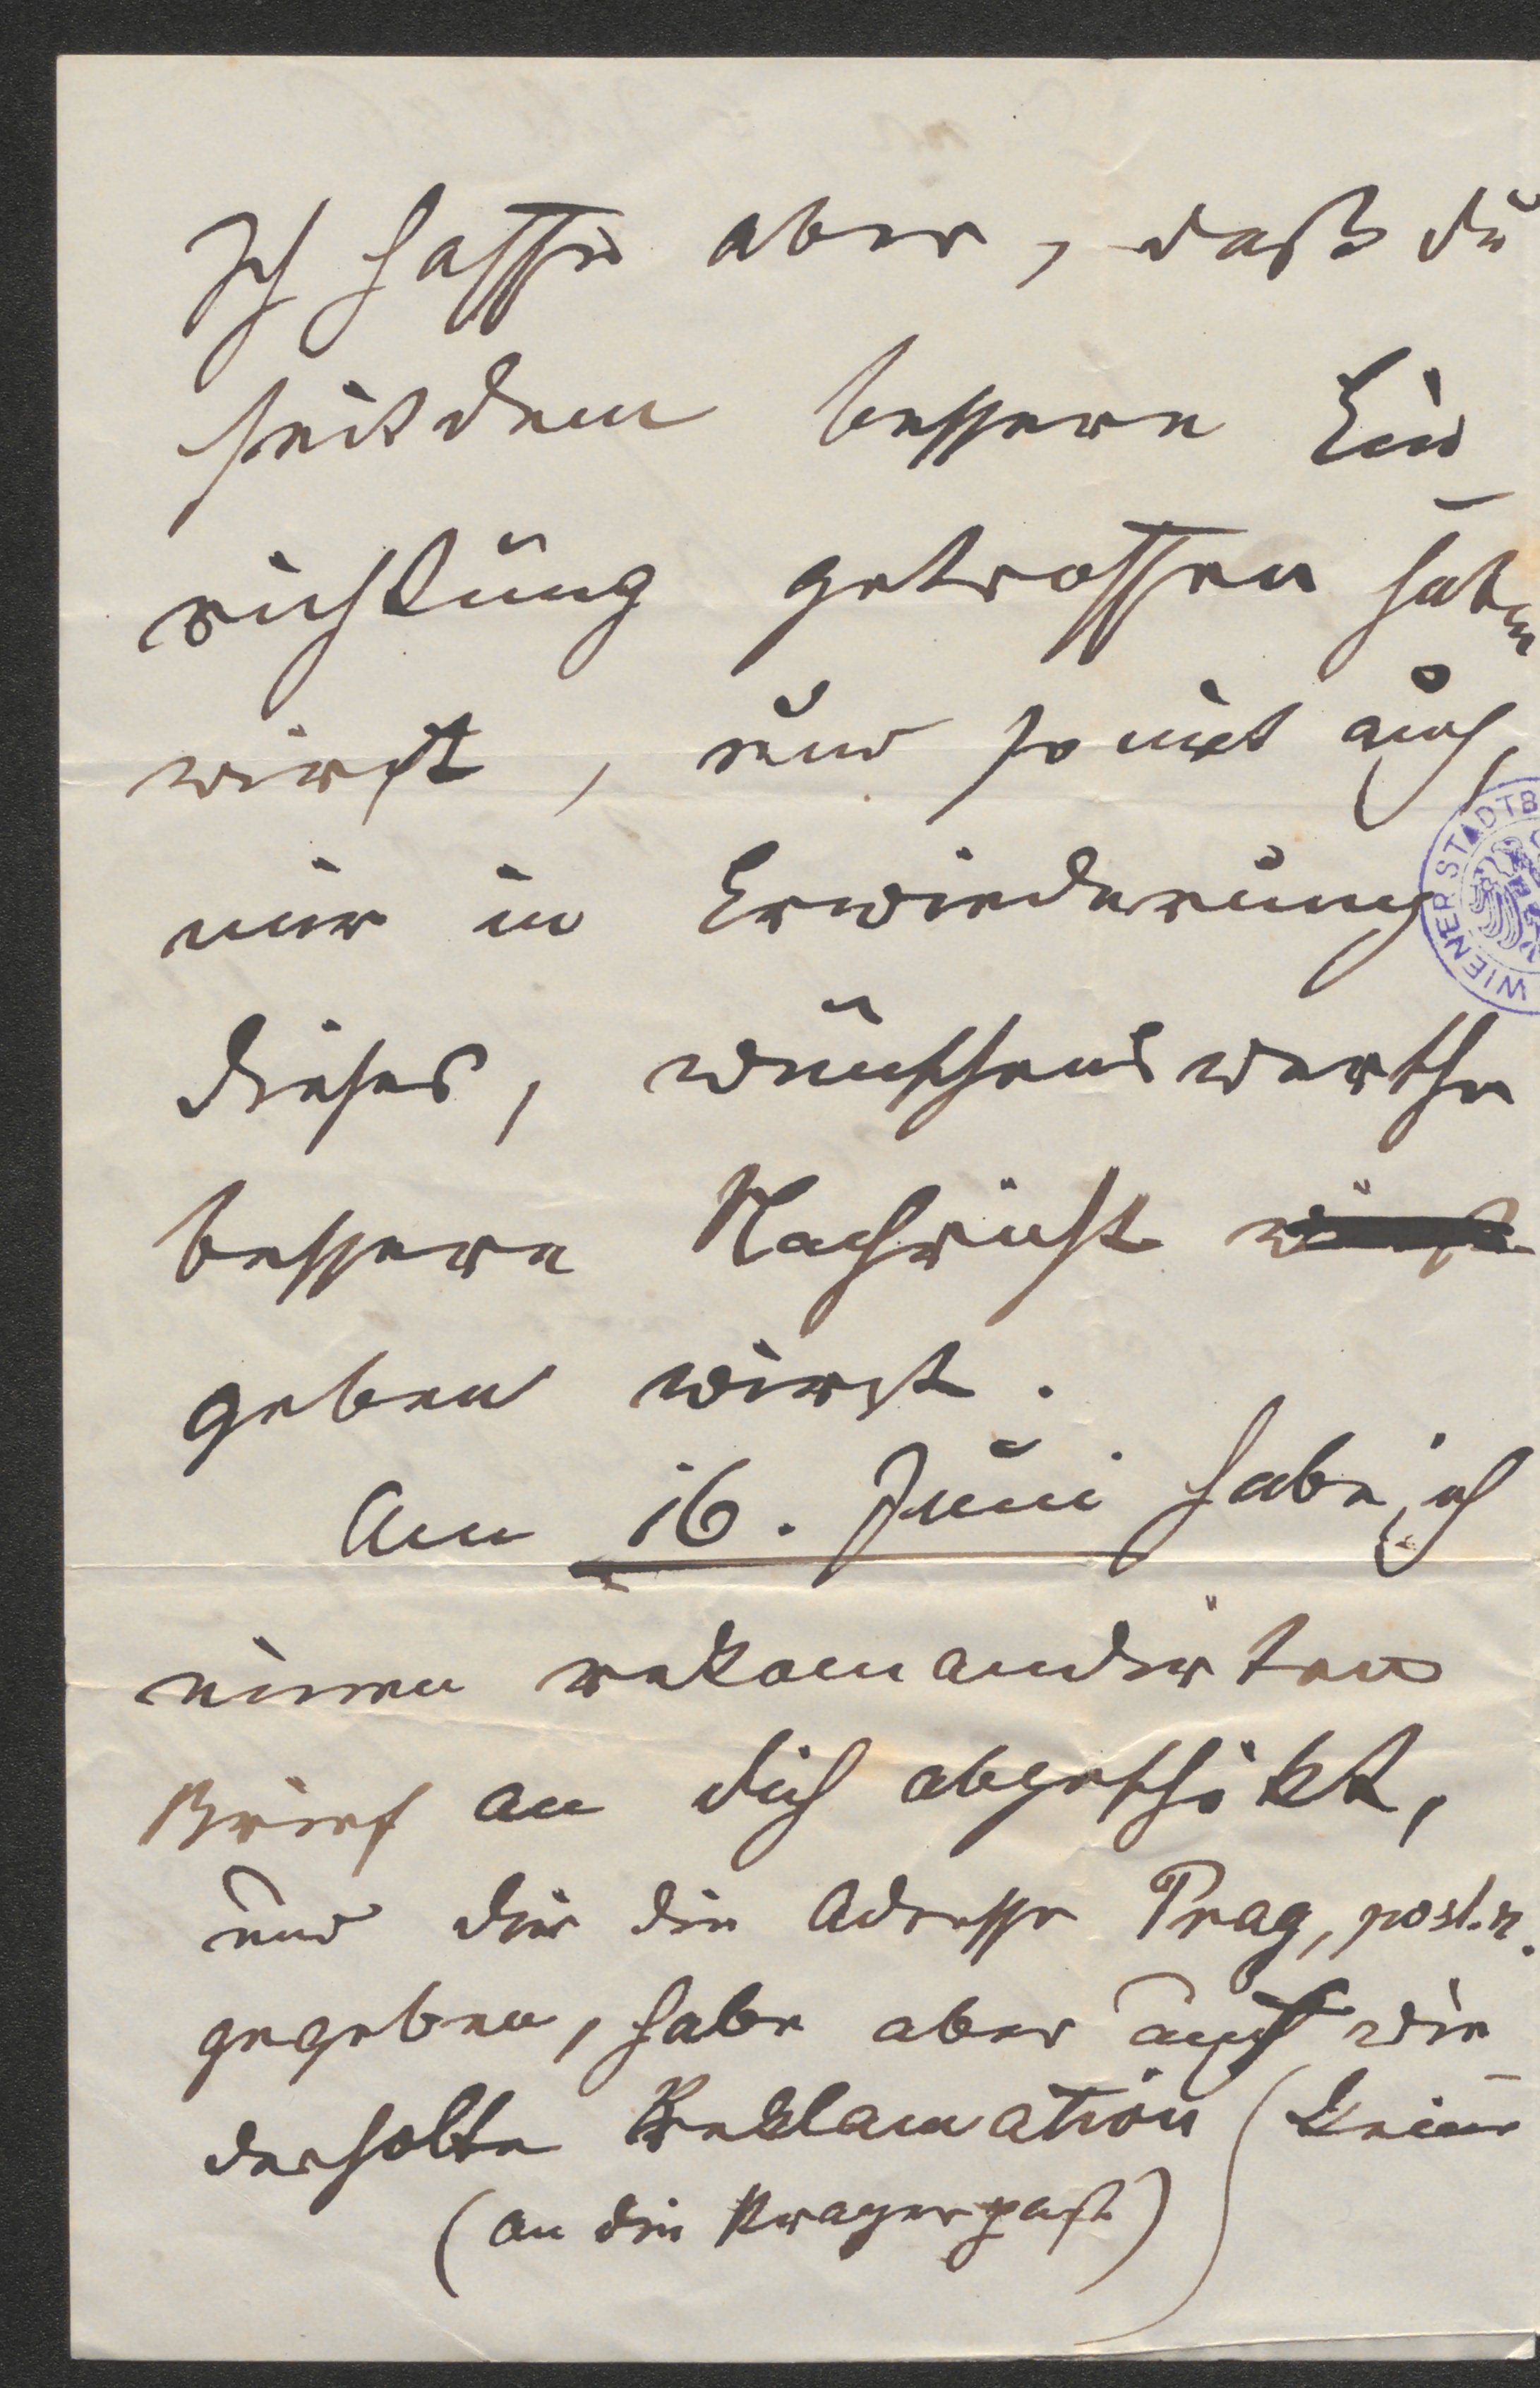 Ich hoffe aber, daß du
seitdem bessere Ein-
richtung getroffen haben
wirst, und somit auch,
mir in Erwiederung
dieses, wünschenswerthe
bessere Nachricht wirst
geben wirst.
Am 16. Juni habe ich
einen rekomandirten
Brief an dich abgeschikt,
und dir die Adresse Prag, post. r.
gegeben, habe aber auf wie-
derholte Reklamation keine
(an die Pragerpost)
WIENER STADTB